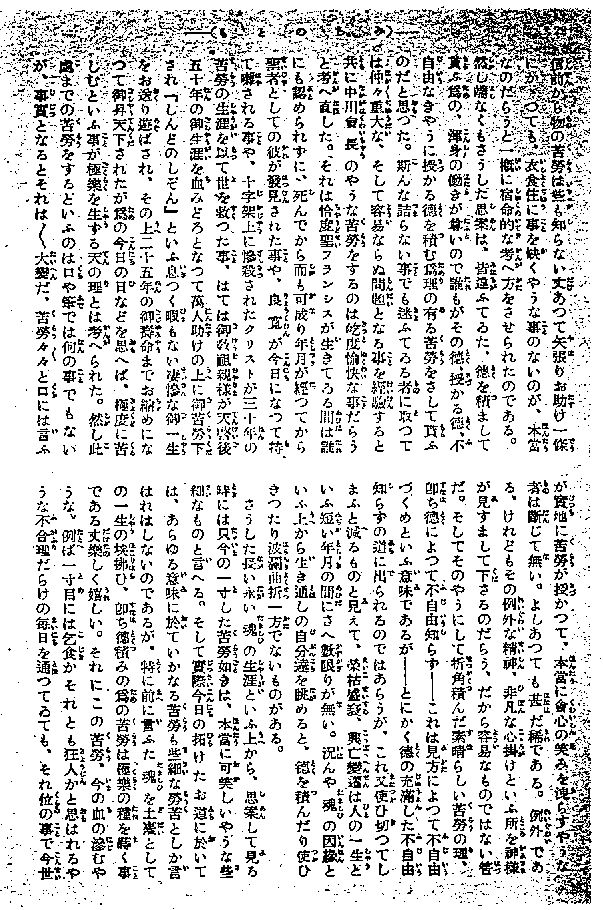 ―(もとのしみ)―
信前から物の苦勞は些も知らない丈あつて矢張りお助け一條
にかゝつても、衣食住に事を缺くやうな事のないのが、本當
なのだらうと一概に宿命的な考へ方をさせられたのである。
然し端なくもさうした思案は、皆違ふてゐた、徳を積まして
貰ふ爲の、渾身の働きが尊いので誰もがその徳、授かる徳、不
自由なきやうに授かる徳を積む爲理の有る苦勞をさして貰ふ
のだと思つた。斯んな詰らない事でも迷ふてゐる者に取つて
は仲々重大な、そして容易ならぬ問題となる事を經驗すると
共に中川會長のやうな苦勞をするのは屹度愉快な事だらう
と考へ直した。それは恰度聖フランシスが生きてゐる間は誰
にも認められずに、死んでから而も可成り年月が經つてから
聖者としての彼が發見された事や、良寛が今日になつて持
て囃される事や、十字架上に慘殺されたクリストが三十年の
苦勞の生涯を以て世を救つた事、はては御教祖親樣が天啓後
五十年の御生涯を血みどろとなつて萬人助けの上に御苦勞下
され『しんどのしぞん』といふ息つく暇もない凄慘な御一生
をお送り遊ばされ、その上二十五年の御壽命までお縮めにな
つて御昇天下されたが爲の今日の日などを思へば、極度に苦
しむといふ事が極樂を生ずる天の理とは考へられた。然し此
處までの苦勞をするといふのは口や筆では何の事でもない
が、事實となるとそれは〳〵大變だ。苦勞々々と口には言ふ
が實地に苦勞が授かつて、本當に會心の笑みを洩らすやうな
者は斷じて無い。よしあつても甚だ稀である。例外であ
る。けれどもその例外な精神、非凡な心掛けといふ所を神樣
が見すまして下さるのだらう、だから容易なものではない筈
だ。そしてそのやうにして折角積んだ素晴らしい苦勞の理、
卽ち徳によつて不自由知らず――これは見方によつて不自由
づくめといふ意味であるが――とにかく徳の充滿した不自由
知らずの道に出られるのではあらうが、これ又使ひ切つてし
まふと減るものと見えて、榮枯盛衰、興亡變遷は人の一生と
いふ短い年月の間にさへ數限りが無い。況んや、魂の因緣と
いふ上から生き通しの自分達を眺めると、徳を積んだり使ひ
きつたり波瀾曲折一方でないものがある。
さうした長い永い魂の生涯といふ上から、思案して見る
時には只今の一寸した苦勞如きは、本當に可笑しいやうな些
細なものと言へる。そして實際今日の拓けたお道に於いて
は、あらゆる意味に於ていかなる苦勞も些細な勞苦としか言
はれはしないのであるが、特に前に言ふた魂を土臺として
の一生の埃拂ひ、卽ち徳積みの爲の苦勞は極樂の種を蒔く事
である丈樂しく嬉しい。それにこの苦勞、今の血の滲むや
うな、例ば一寸目には乞食かそれとも狂人かと思はれるや
うな不合理だらけの毎日を通つてゐても、それ位の事で今世